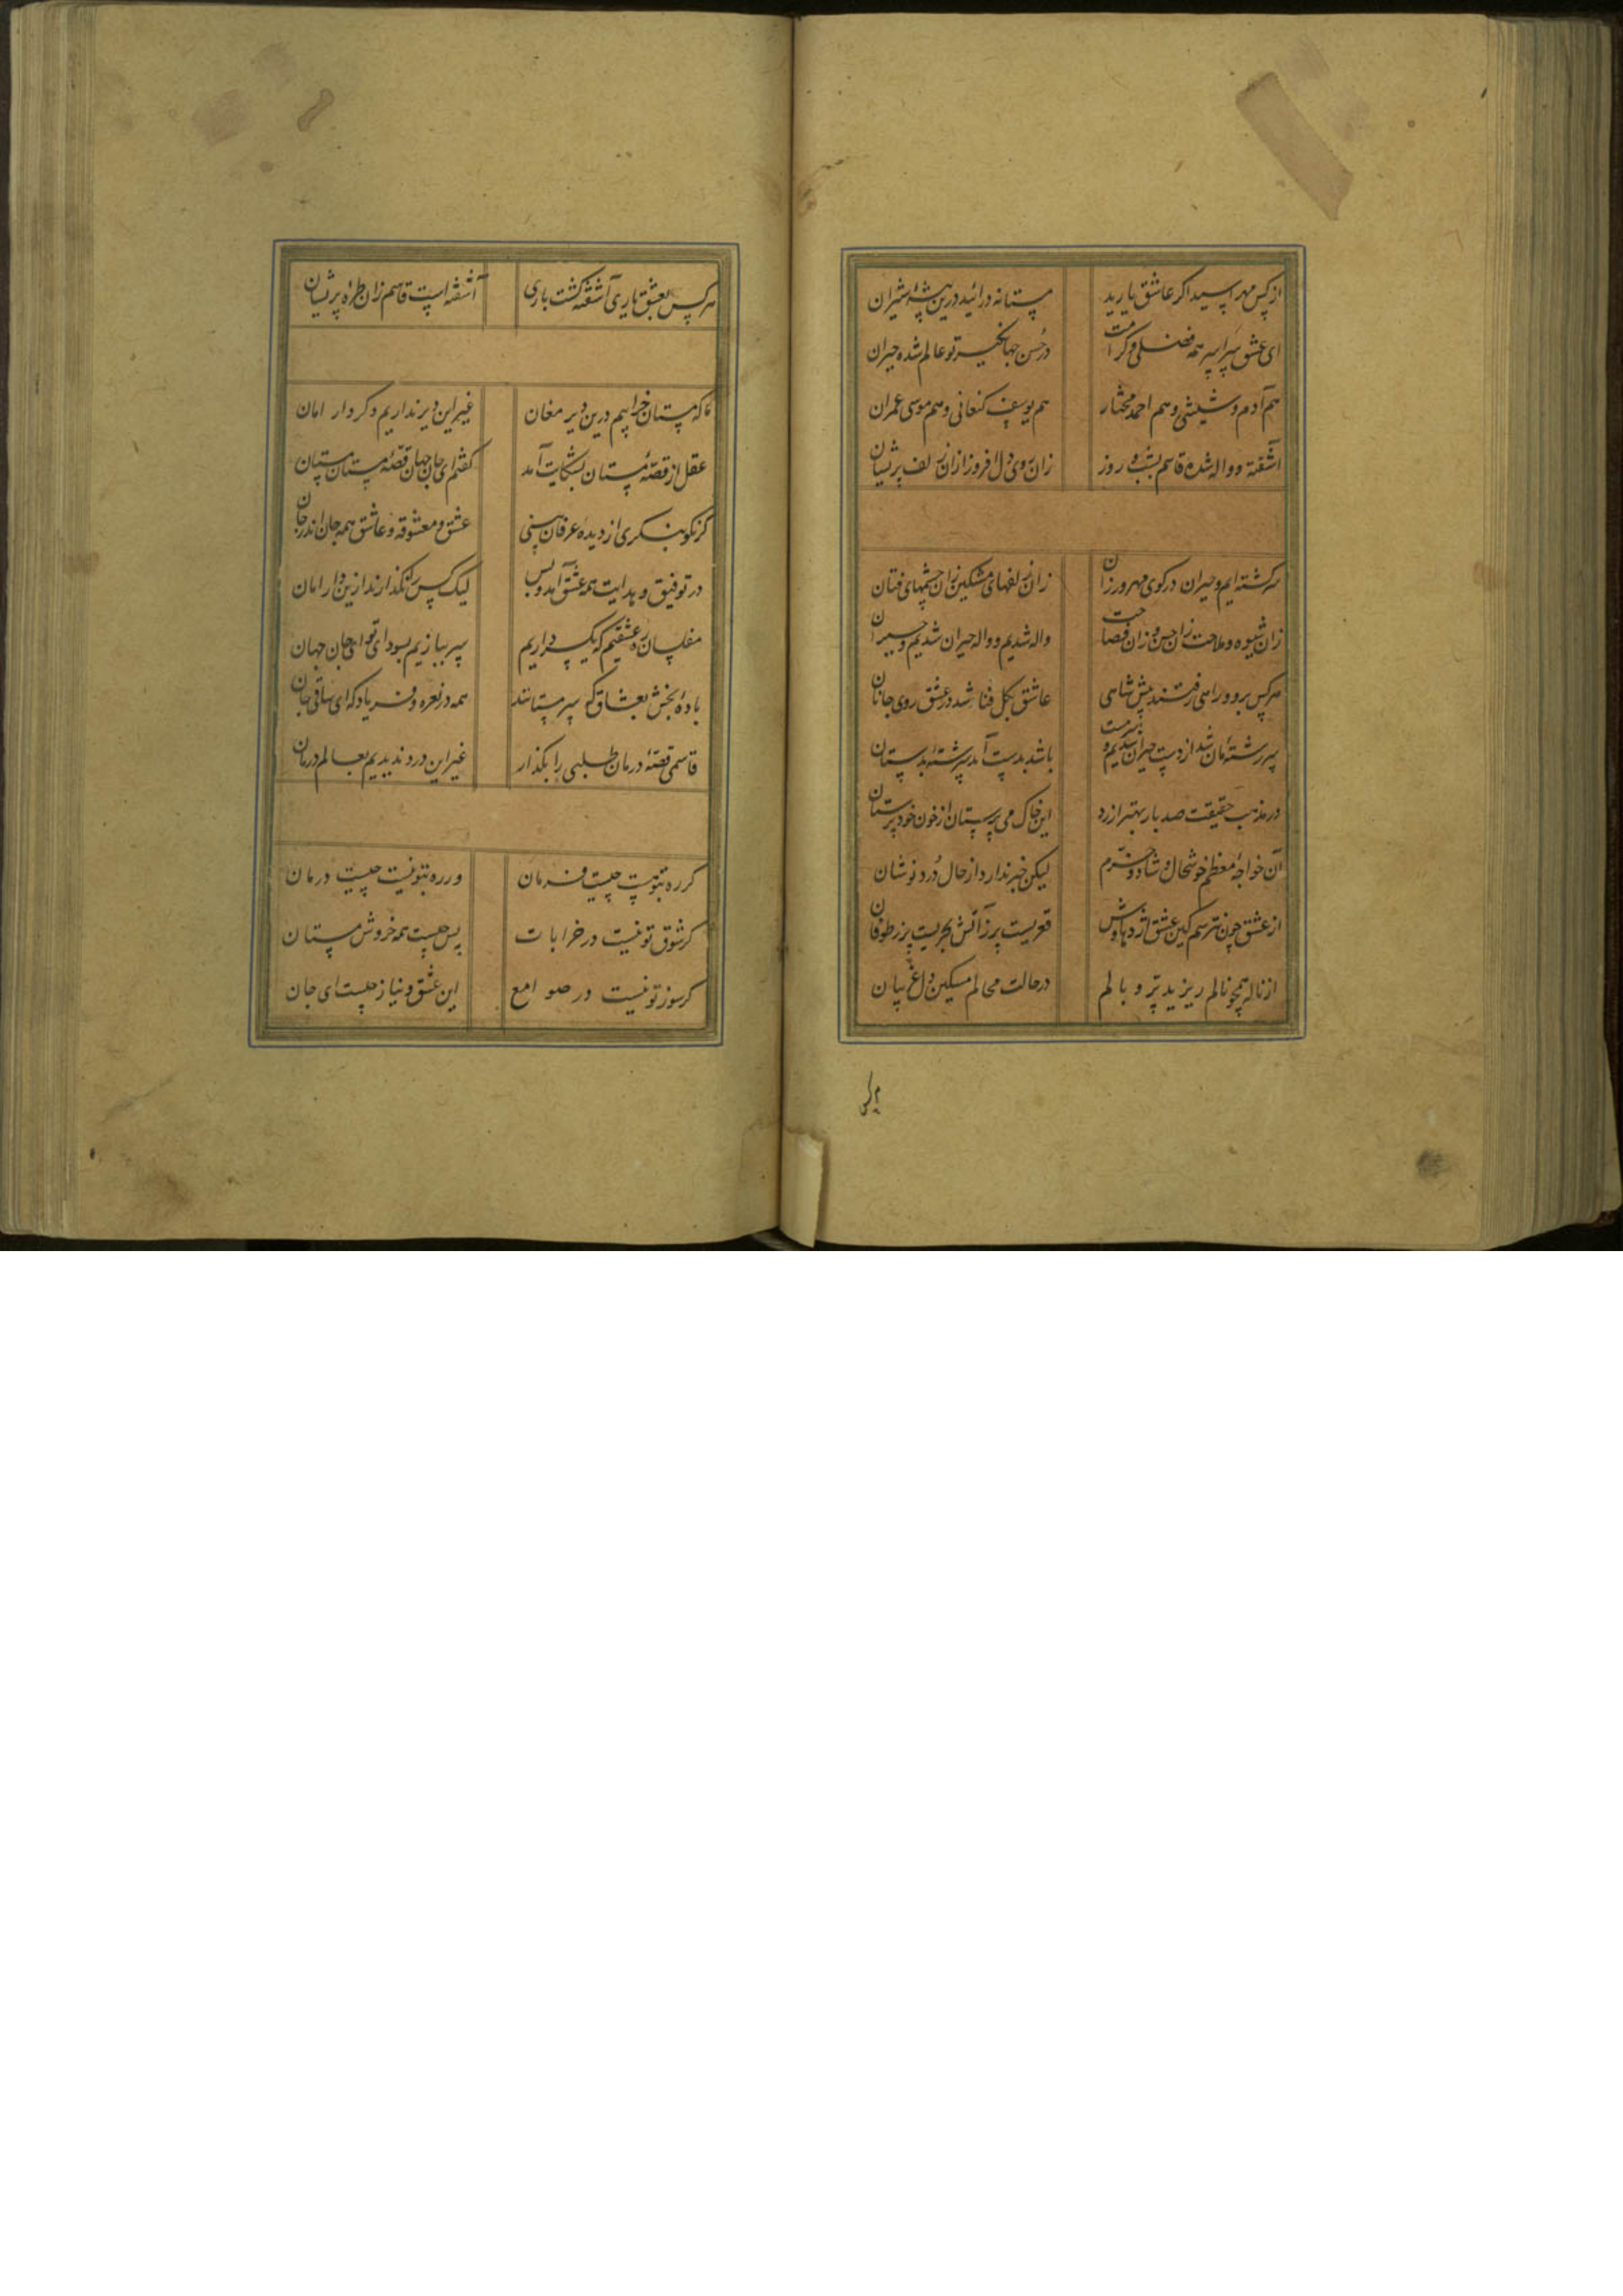 از کس مهراسید اگر عاشق یارید مستانه درآئید درین بیشهٔ شیران
ای عشق سراسر همه فضلی و کرامت در حسن جهانگیر تو عالم شده حیران
هم آدم و شیثی و هم احمد مختار هم یوسف کنعانی و هم موسی عمران
آشفته و واله شده قاسم بشب و روز زان روی دل افروز ازان زلف پریشان
سرگشته ایم و حیران در کوی مهرورزان زان زلفهای مشکین زان چشمهای فتان
زان شیوه و ملاحت زان حسن و زان فصاحت واله شدیم و واله حیران شدیم و حیران
هرکس برو و راهی رفتند پیش شاهی عاشق بکل فنا شد در عشق روی جانان
سررشته مان شد از دست حیران شدیم و سرمست باشد بدست آید سررشتهٔ بدستان
در مذهب حقیقت صد بار بهتر ارزد این خاک می پرستان از خون خودپرستان
آن خواجهٔ معظم خوشحال و شاد و خرم لیکن خبر ندارد از حال درد نوشان
از عشق چون نترسم کین عشق اژدهاوش قعریست پرز آتش بحریست پرز طوفان
از ناله همچو نالم ریزید پر و بالم در حالت محالم مسکین دل غ بیان
هرکس بعشق یاری آشفته گشت باری آشفته است قاسم زان طرهٔ پریشان
ما که مستان خرابیم درین دیر مغان غیر این دیر نداریم دگر دار امان
عقل از قصهٔ مستان بشکایت آمد گفتم ای جان جهان قصهٔ مستان مستان
گر نکو بنگری از دیدهٔ عرفان بینی عشق و معشوقه و عاشق همه جان اندر جان
در توفیق و هدایت همه عشق آمد و بس لیک کس را نگذارند ازین دار امان
مفلسان ره عشقیم که یک سر داریم سر ببازیم بسودای تو ای جان جهان
بادهٔ بخش بعشاق که سرمستانند همه در نعره و فریاد که ای ساقی جان
قاسمی قصهٔ درمان طلبی را بگذار غیر این درد ندیدیم بعالم درمان
گر ره بتو نیست چیست فرمان ور ره بتو نیست چیست درمان
گر شوق تو نیست در خرابات پس چیست همه خروش مستان
گر سوز تو نیست در صوامع این عشق و نیاز چیست ای جان